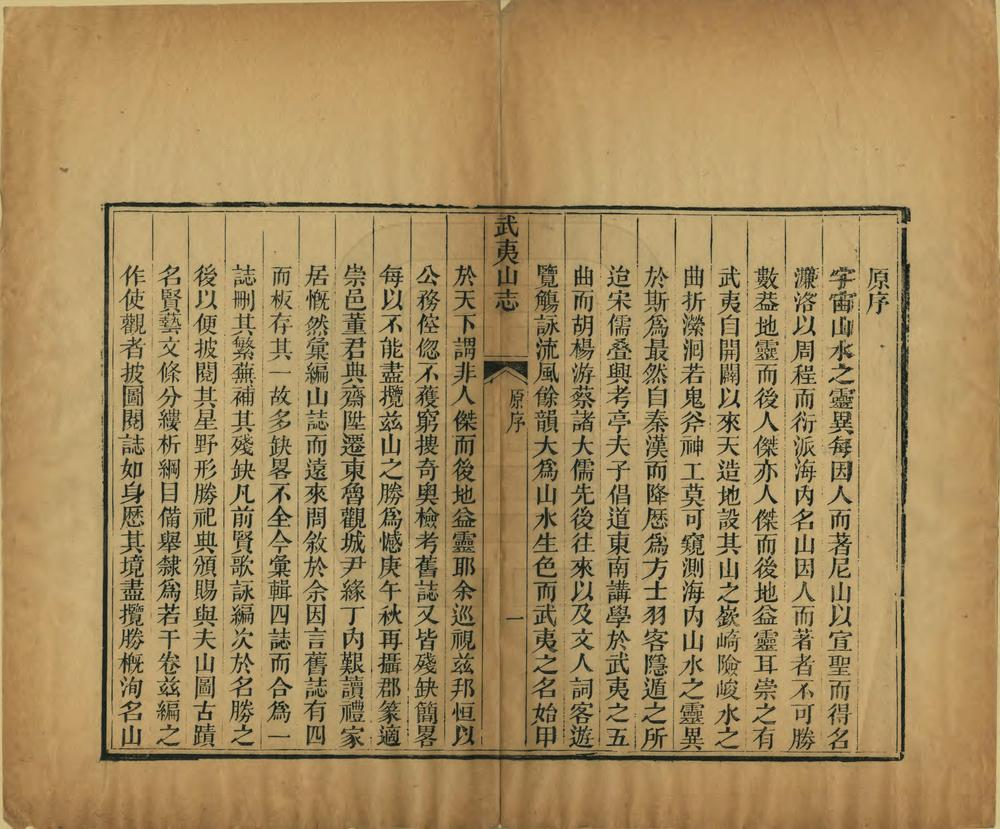 原序
宇宙山水之靈異每因人而著尼山以宣聖而得名
濂洛以周程而衍派海內名山因人而著者不可勝
數葢地靈而後人傑亦人傑而後地益靈耳崇之有
武夷自開闢以來天造地設其山之嶔崎險峻水之
曲折瀠洄若鬼斧神工莫可窺測海內山水之靈異
於斯爲最然自秦漢而降歷爲方士羽客隱遁之所
迨宋儒疊興考亭夫子倡道東南講學於武夷之五
曲而胡楊游蔡諸大儒先後往來以及文人詞客遊
覽觴詠流風餘韻大爲山水生色而武夷之名始甲
武夷山志
原序
一
於天下謂非人傑而後地益靈耶余巡視兹邦恒以
公務倥偬不獲窮搜奇奧檢考舊誌又皆殘缺簡畧
每以不能盡攬兹山之勝爲憾庚午秋再攝郡篆適
崇邑董君典齋陞遷東魯觀城尹緣丁內艱讀禮家
居慨然彙編山誌而遠來問敘於余因言舊誌有四
而板存其一故多缺畧不全今彙輯四誌而合爲一
誌刪其繁蕪補其殘缺凡前賢歌詠編次於名勝之
後以便披閱其星野形勝祀典頒賜與夫山圖古蹟
名賢藝文條分縷析綱目備舉隸爲若干卷兹編之
作使觀者披圖閱誌如身歷其境盡攬勝概洵名山